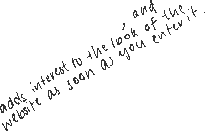 adds interest to the look of the, and
website as soon as you enter it.